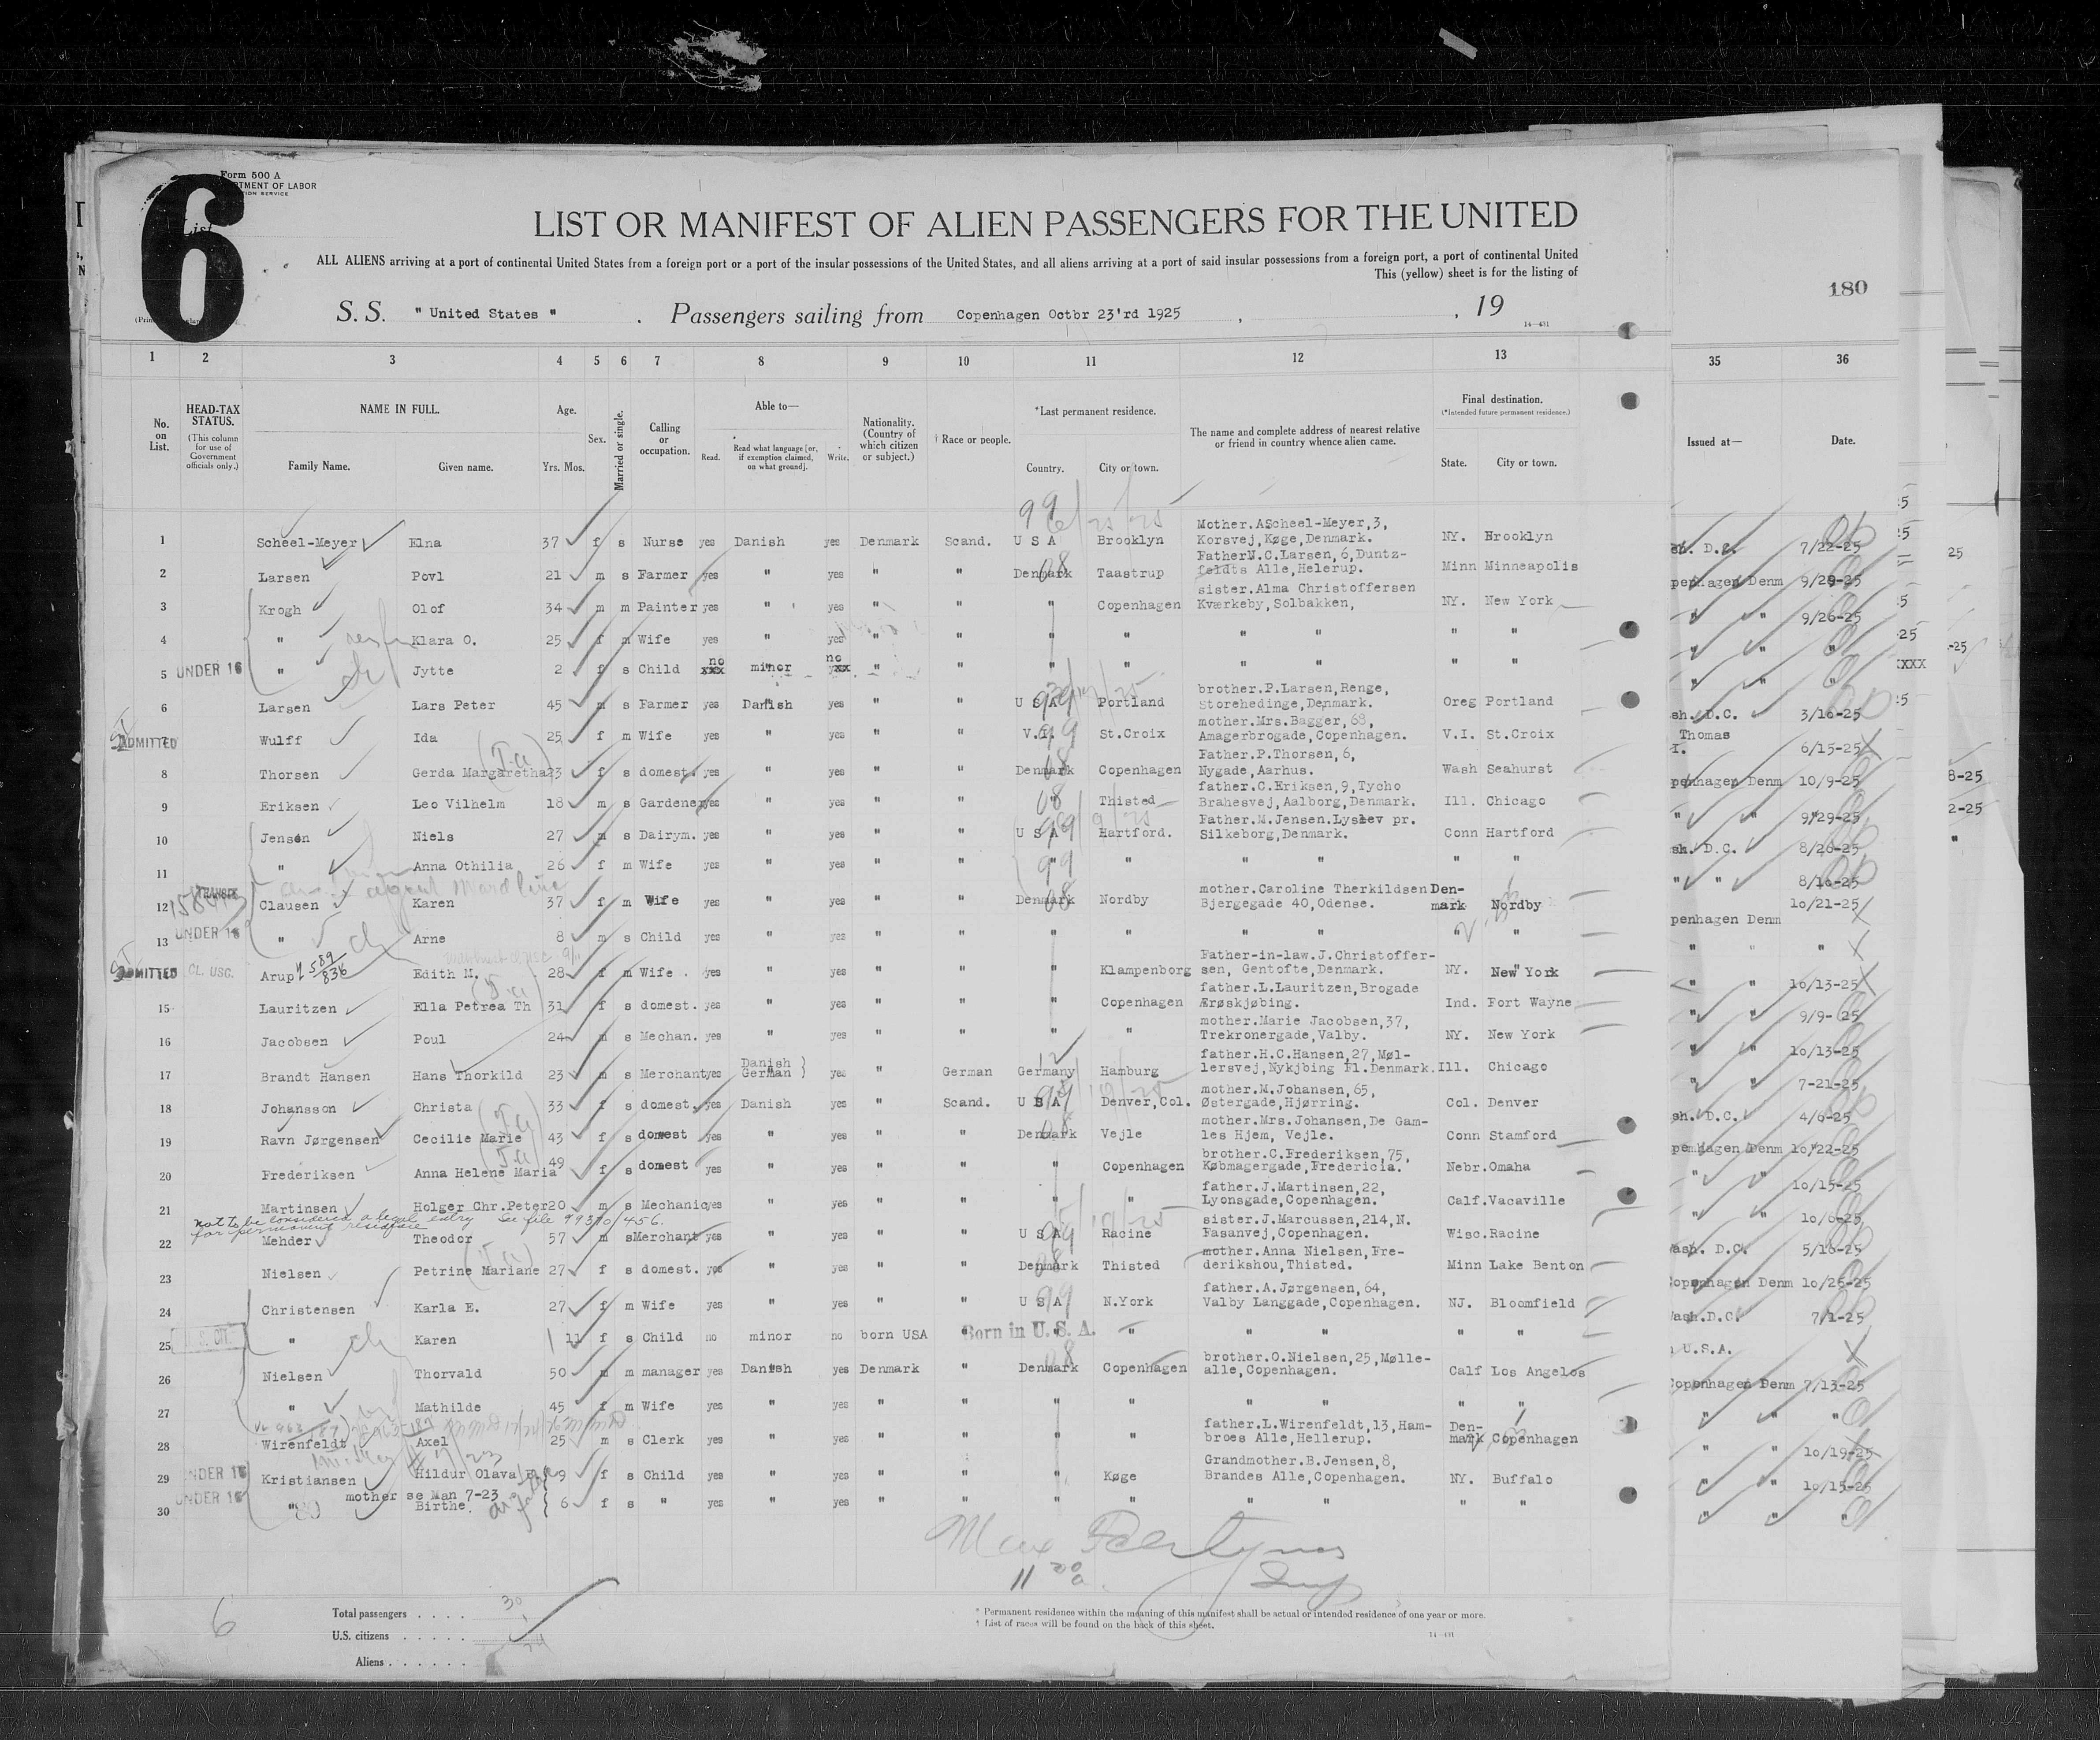 Form 500 A
TMENT OF LABOR
List
6
LIST OR MANIFEST OF ALIEN PASSENGERS FOR THE UNITED
ALL ALIENS arriving at a port of continental United States from a foreign port or a port of the insular possessions of the United States, and all aliens arriving at a port of said insular possessions from a foreign port, a port of continental United
This (yellow) sheet is for the listing of
180
S. S. " United States " . Passengers sailing from Copenhagen Octbr 23'rd 1925 , , 19
14—431
1 2 3 4 5 6 7 8 9 10 11 12 13 35 36
No. on List.
HEAD-TAX STATUS.
(This column for use of Government officials only.)
NAME IN FULL.
Family Name. Given name.
Age.
Yrs. Mos.
Sex.
Married or single.
Calling or occupation.
Able to—
Read. Read what language [or, if exemption claimed, on what ground]. Write.
Nationality. (Country of which citizen or subject.)
† Race or people.
*Last permanent residence.
Country. City or town.
The name and complete address of nearest relative or friend in country whence alien came.
Final destination.
(*Intended future permanent residence.)
State. City or town.
Issued at— Date.
1 Scheel-Meyer Elna 37 f s Nurse yes Danish yes Denmark Scand. U S A Brooklyn Mother.AScheel-Meyer,3, Korsvej,Køge,Denmark. NY. Brooklyn D.C. 7/22-25
2 Larsen Povl 21 m s Farmer yes " yes " " Denmark Taastrup FatherN.C.Larsen,6,Duntz-feldts Alle,Helerup. Minn Minneapolis penhagen Denm 9/29-25
3 Krogh Olof 34 m m Painter yes " yes " " " Copenhagen sister.Alma Christoffersen Kværkeby,Solbakken, NY. New York " " 9/26-25
4 " Klara O. 25 f m Wife yes " yes " " " " " " " " " " "
5 UNDER 16 " Jytte 2 f s Child no xxx minor no yxx " " " " " " " " " "
6 Larsen Lars Peter 45 m s Farmer yes Danish yes " " U S A Portland brother.P.Larsen,Renge, Storehedinge,Denmark. Oreg Portland sh. D.C. 3/16-25
7 ADMITTED Wulff Ida 25 f m Wife yes " yes " " V.I. St.Croix mother.Mrs.Bagger,68, Amagerbrogade,Copenhagen. V.I. St.Croix Thomas I. 6/15-25
8 Thorsen Gerda Margaretha 23 f s domest. yes " yes " " Denmark Copenhagen Father.P.Thorsen,6, Nygade,Aarhus. Wash Seahurst penhagen Denm 10/9-25
9 Eriksen Leo Vilhelm 18 m s Gardener yes " yes " " " Thisted father.C.Eriksen,9,Tycho Brahesvej,Aalborg,Denmark. Ill. Chicago " " 9/29-25
10 Jensen Niels 27 m s Dairym. yes " yes " " U S A Hartford. Father.M.Jensen.Lyslev pr. Silkeborg,Denmark. Conn Hartford sh. D.C. 8/26-25
11 " Anna Othilia 26 f m Wife yes " yes " " " " " " " " " " 8/16-25
12 Clausen Karen 37 f m Wife yes " yes " " Denmark Nordby mother.Caroline Therkildsen Bjergegade 40,Odense. Den-mark Nordby penhagen Denm 10/21-25
13 UNDER 16 " Arne 8 m s Child yes " yes " " " " " " " " " " "
ADMITTED CL. USC. Arup Edith M. 28 f m Wife . yes " yes " " " Klampenborg Father-in-law.J.Christoffer-sen, Gentofte,Denmark. NY. New York " " 10/13-25
15 Lauritzen Ella Petrea Th 31 f s domest. yes " yes " " " Copenhagen father.L.Lauritzen,Brogade Ærøskjøbing. Ind. Fort Wayne " " 9/9-25
16 Jacobsen Poul 24 m s Mechan. yes " yes " " " " mother.Marie Jacobsen,37, Trekronergade,Valby. NY. New York " " 10/13-25
17 Brandt Hansen Hans Thorkild 23 m s Merchant yes Danish German } yes " German Germany Hamburg father.H.C.Hansen,27,Møl-lersvej,Nykjbing Fl.Denmark. Ill. Chicago " " 7-21-25
18 Johansson Christa 33 f s domest. yes Danish yes " Scand. U S A Denver,Col. mother.M.Johansen,65, Østergade,Hjørring. Col. Denver sh. D.C. 4/6-25
19 Ravn Jørgensen Cecilie Marie 43 f s domest yes " yes " " Denmark Vejle mother.Mrs.Johansen,De Gam-les Hjem, Vejle. Conn Stamford penhagen Denm 10/22-25
20 Frederiksen Anna Helene Maria 49 f s domest yes " yes " " " Copenhagen brother.C.Frederiksen,75, Købmagergade,Fredericia. Nebr. Omaha " " 10/15-25
21 Martinsen Holger Chr.Peter 20 m s Mechanic yes " yes " " " " father.J.Martinsen,22, Lyonsgade,Copenhagen. Calf. Vacaville " " 10/6-25
not to be considered a legal entry See file 99370/456.
for permanent residence
22 Mehder Theodor 57 m s Merchant yes " yes " " U S A Racine sister.J.Marcussen,214,N. Fasanvej,Copenhagen. Wisc. Racine Wash. D.C. 5/16-25
23 Nielsen Petrine Mariane 27 f s domest. yes " yes " " Denmark Thisted mother.Anna Nielsen,Fre-derikshou,Thisted. Minn Lake Benton Copenhagen Denm 10/25-25
24 Christensen Karla E. 27 f m Wife yes " yes " " U S A N.York father.A.Jørgensen,64, Valby Langgade,Copenhagen. NJ. Bloomfield Wash.D.C. 7/1-25
25 U.S. CIT. " Karen 11 f s Child no minor no born USA " Born in U. S. A. " " " " " U.S.A.
26 Nielsen Thorvald 50 m m manager yes Danish yes Denmark " Denmark Copenhagen brother.O.Nielsen,25,Mølle-alle,Copenhagen. Calf Los Angelos Copenhagen Denm 7/13-25
27 " Mathilde 45 f m Wife yes " yes " " " " " " " " " " "
28 Wirenfeldt Axel 25 m s Clerk yes " yes " " " " father.L.Wirenfeldt,13,Ham-broes Alle,Hellerup. Den-mark Copenhagen " " 10/19-25
29 UNDER 16 Kristiansen Hildur Olava 9 f s Child yes " yes " " " Køge Grandmother.B.Jensen,8, Brandes Alle,Copenhagen. NY. Buffalo " " 10/15-25
mother se Man 7-23
30 UNDER 16 " Birthe. 6 f s " yes " yes " " " " " " " " " " "
Max
11
6
Total passengers . . . . 30
U.S. citizens . . . . . 1
Aliens . . . . . .
* Permanent residence within the meaning of this manifest shall be actual or intended residence of one year or more.
† List of races will be found on the back of this sheet.
14—431